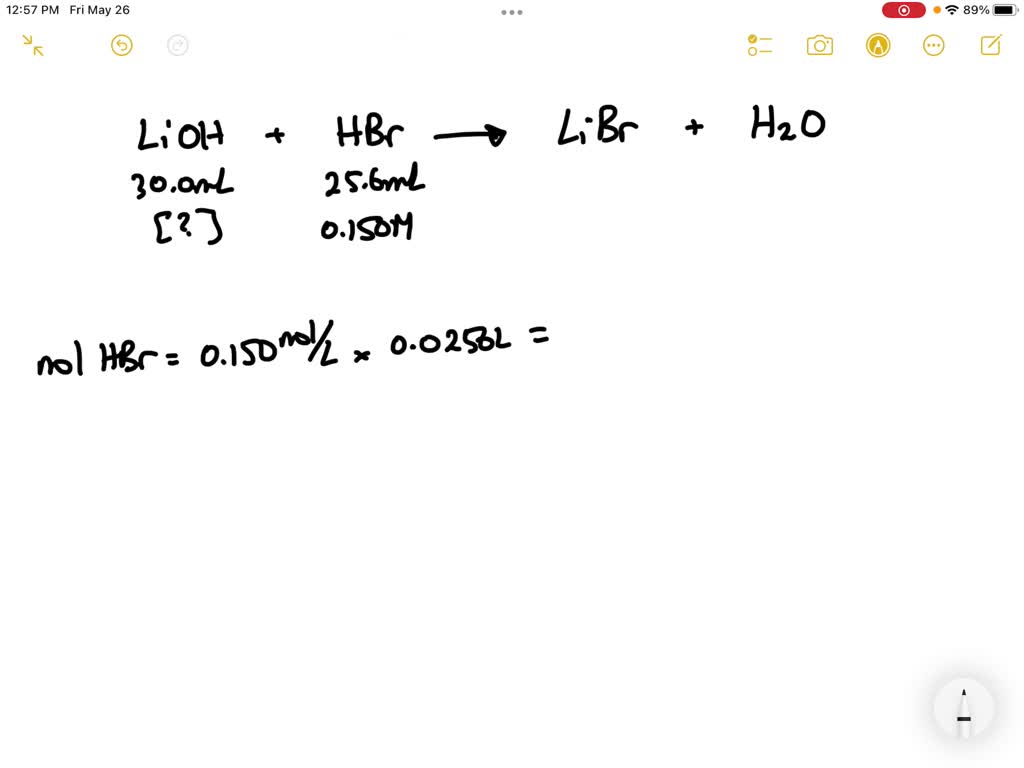 12:57 PM Fri May 26 89%
LiOH + HBr → LiBr + H₂O
30.0mL 25.6mL
[?] 0.150M
mol HBr = 0.150 mol/L × 0.0256L =